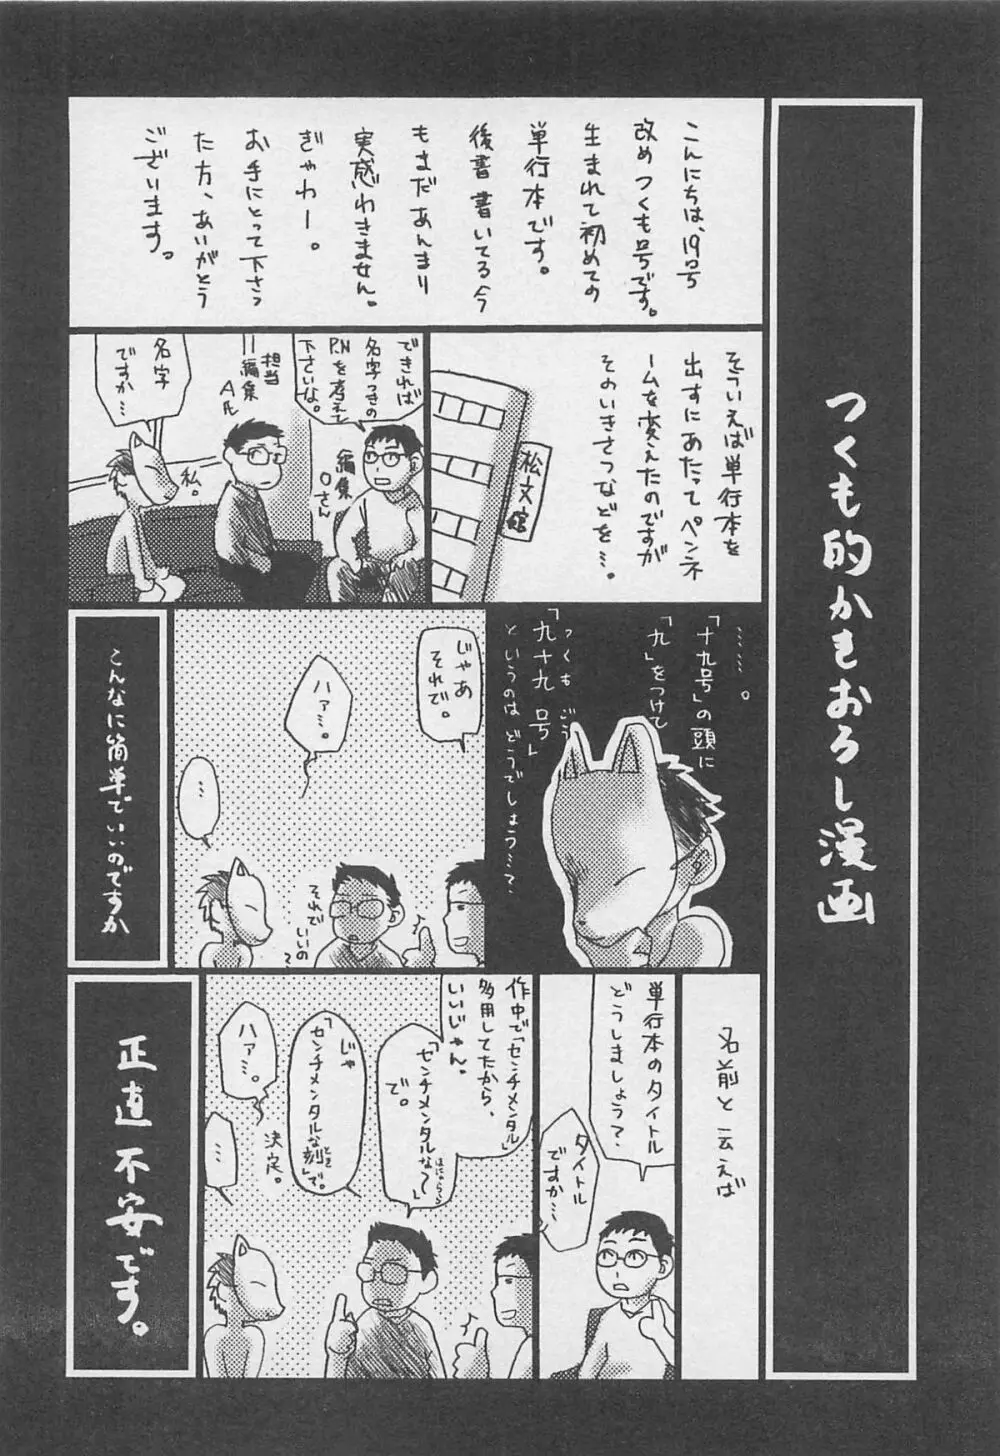 つくも的かきおろし漫画
こんにちは、19号
改めつくも号です。
生まれて初めての
単行本です。
後書書いてる今
もまだあんまり
実感わきません。
ぎゃわー。
お手にとって下さっ
た方、ありがとう
ございます。
そういえば単行本を
出すにあたってペンネ
ームを変えたのですが
そのいきさつなどを…。
松文館
できれば
名字つきの
P.Nを考えて
下さいな。
編集
Oさん
担当
編集
A氏
名字
ですか…
私。
……。
「十九号」の頭に
「九」をつけて
つくも ごう
「九十九号」
というのはどうでしょう…?
じゃあ
それで。
ハァ…。
…
それで
いいの
?
こんなに簡単でいいのですか
名前と云えば
単行本のタイトル
どうしましょう?
タイトル
ですか…
作中で「センチメンタル」
多用してたから、
いいじゃん。
「センチメンタルな〜」
ほにゃらら
で。
じゃ
「センチメンタルな刻」で。
とき
決定。
ハァ…。
…
正直不安です。